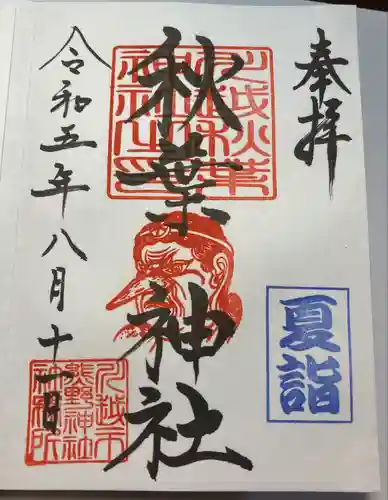 奉拝
夏詣
川越秋葉
神社之印
秋葉神社
令和五年八月十一日
川越市
熊野神社
社務所